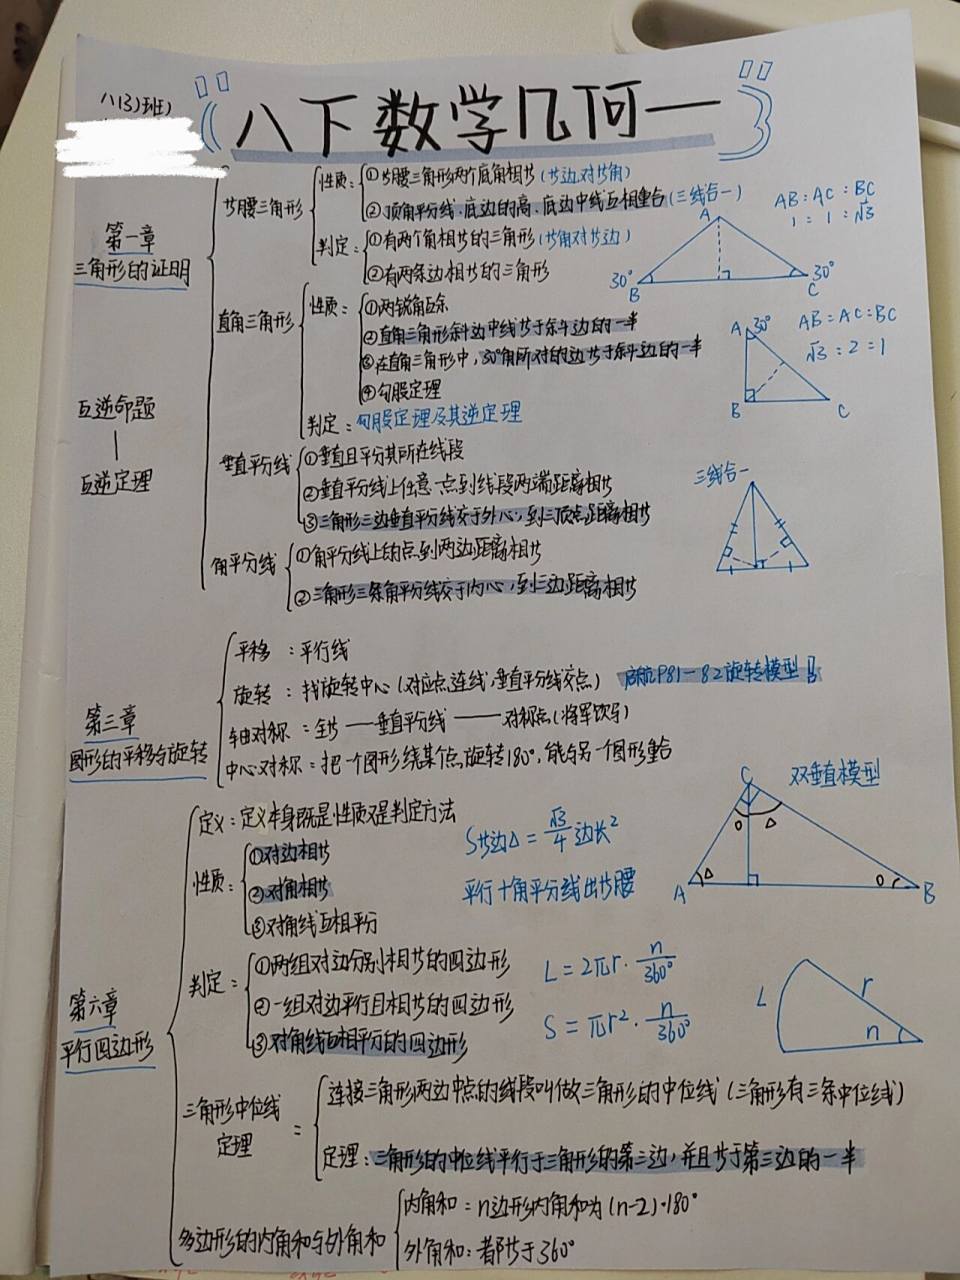 八(3)班
八下数学几何一
第一章
三角形的证明
等腰三角形
性质:①等腰三角形两个底角相等(等边对等角)
②顶角平分线、底边的高、底边中线互相重合(三线合一)
判定:①有两个角相等的三角形(等角对等边)
②有两条边相等的三角形
A
30°
B
30°
C
AB:AC:BC
1:1:√3
直角三角形
性质:①两锐角互余
②直角三角形斜边中线等于斜边的一半
③在直角三角形中,30°角所对的边等于斜边的一半
④勾股定理
判定:勾股定理及其逆定理
A 30°
B
C
AB=AC=BC
√3=2=1
互逆命题
互逆定理
垂直平分线
①垂直且平分其所在线段
②垂直平分线上任意一点到线段两端距离相等
③三角形三边垂直平分线交于外心,到三顶点距离相等
三线合一
角平分线
①角平分线上的点到两边距离相等
②三角形三条角平分线交于内心,到三边距离相等
第三章
图形的平移与旋转
平移:平行线
旋转:找旋转中心(对应点连线,垂直平分线交点)
启航P81-82旋转模型!
轴对称:全等——垂直平分线——对称点(将军饮马)
中心对称:把一个图形绕某个点旋转180°,能与另一个图形重合
双垂直模型
C
A
B
第六章
平行四边形
定义:定义本身既是性质又是判定方法
性质:①对边相等
②对角相等
③对角线互相平分
S等边△=√3/4边长²
平行+角平分线出等腰
判定:①两组对边分别相等的四边形
②一组对边平行且相等的四边形
③对角线互相平分的四边形
L=2πr·n/360°
S=πr²·n/360°
L
r
n
三角形中位线
定理
=
连接三角形两边中点的线段叫做三角形的中位线(三角形有三条中位线)
定理:三角形的中位线平行于三角形的第三边,并且等于第三边的一半
多边形的内角和与外角和
内角和:n边形内角和为(n-2)·180°
外角和:都等于360°